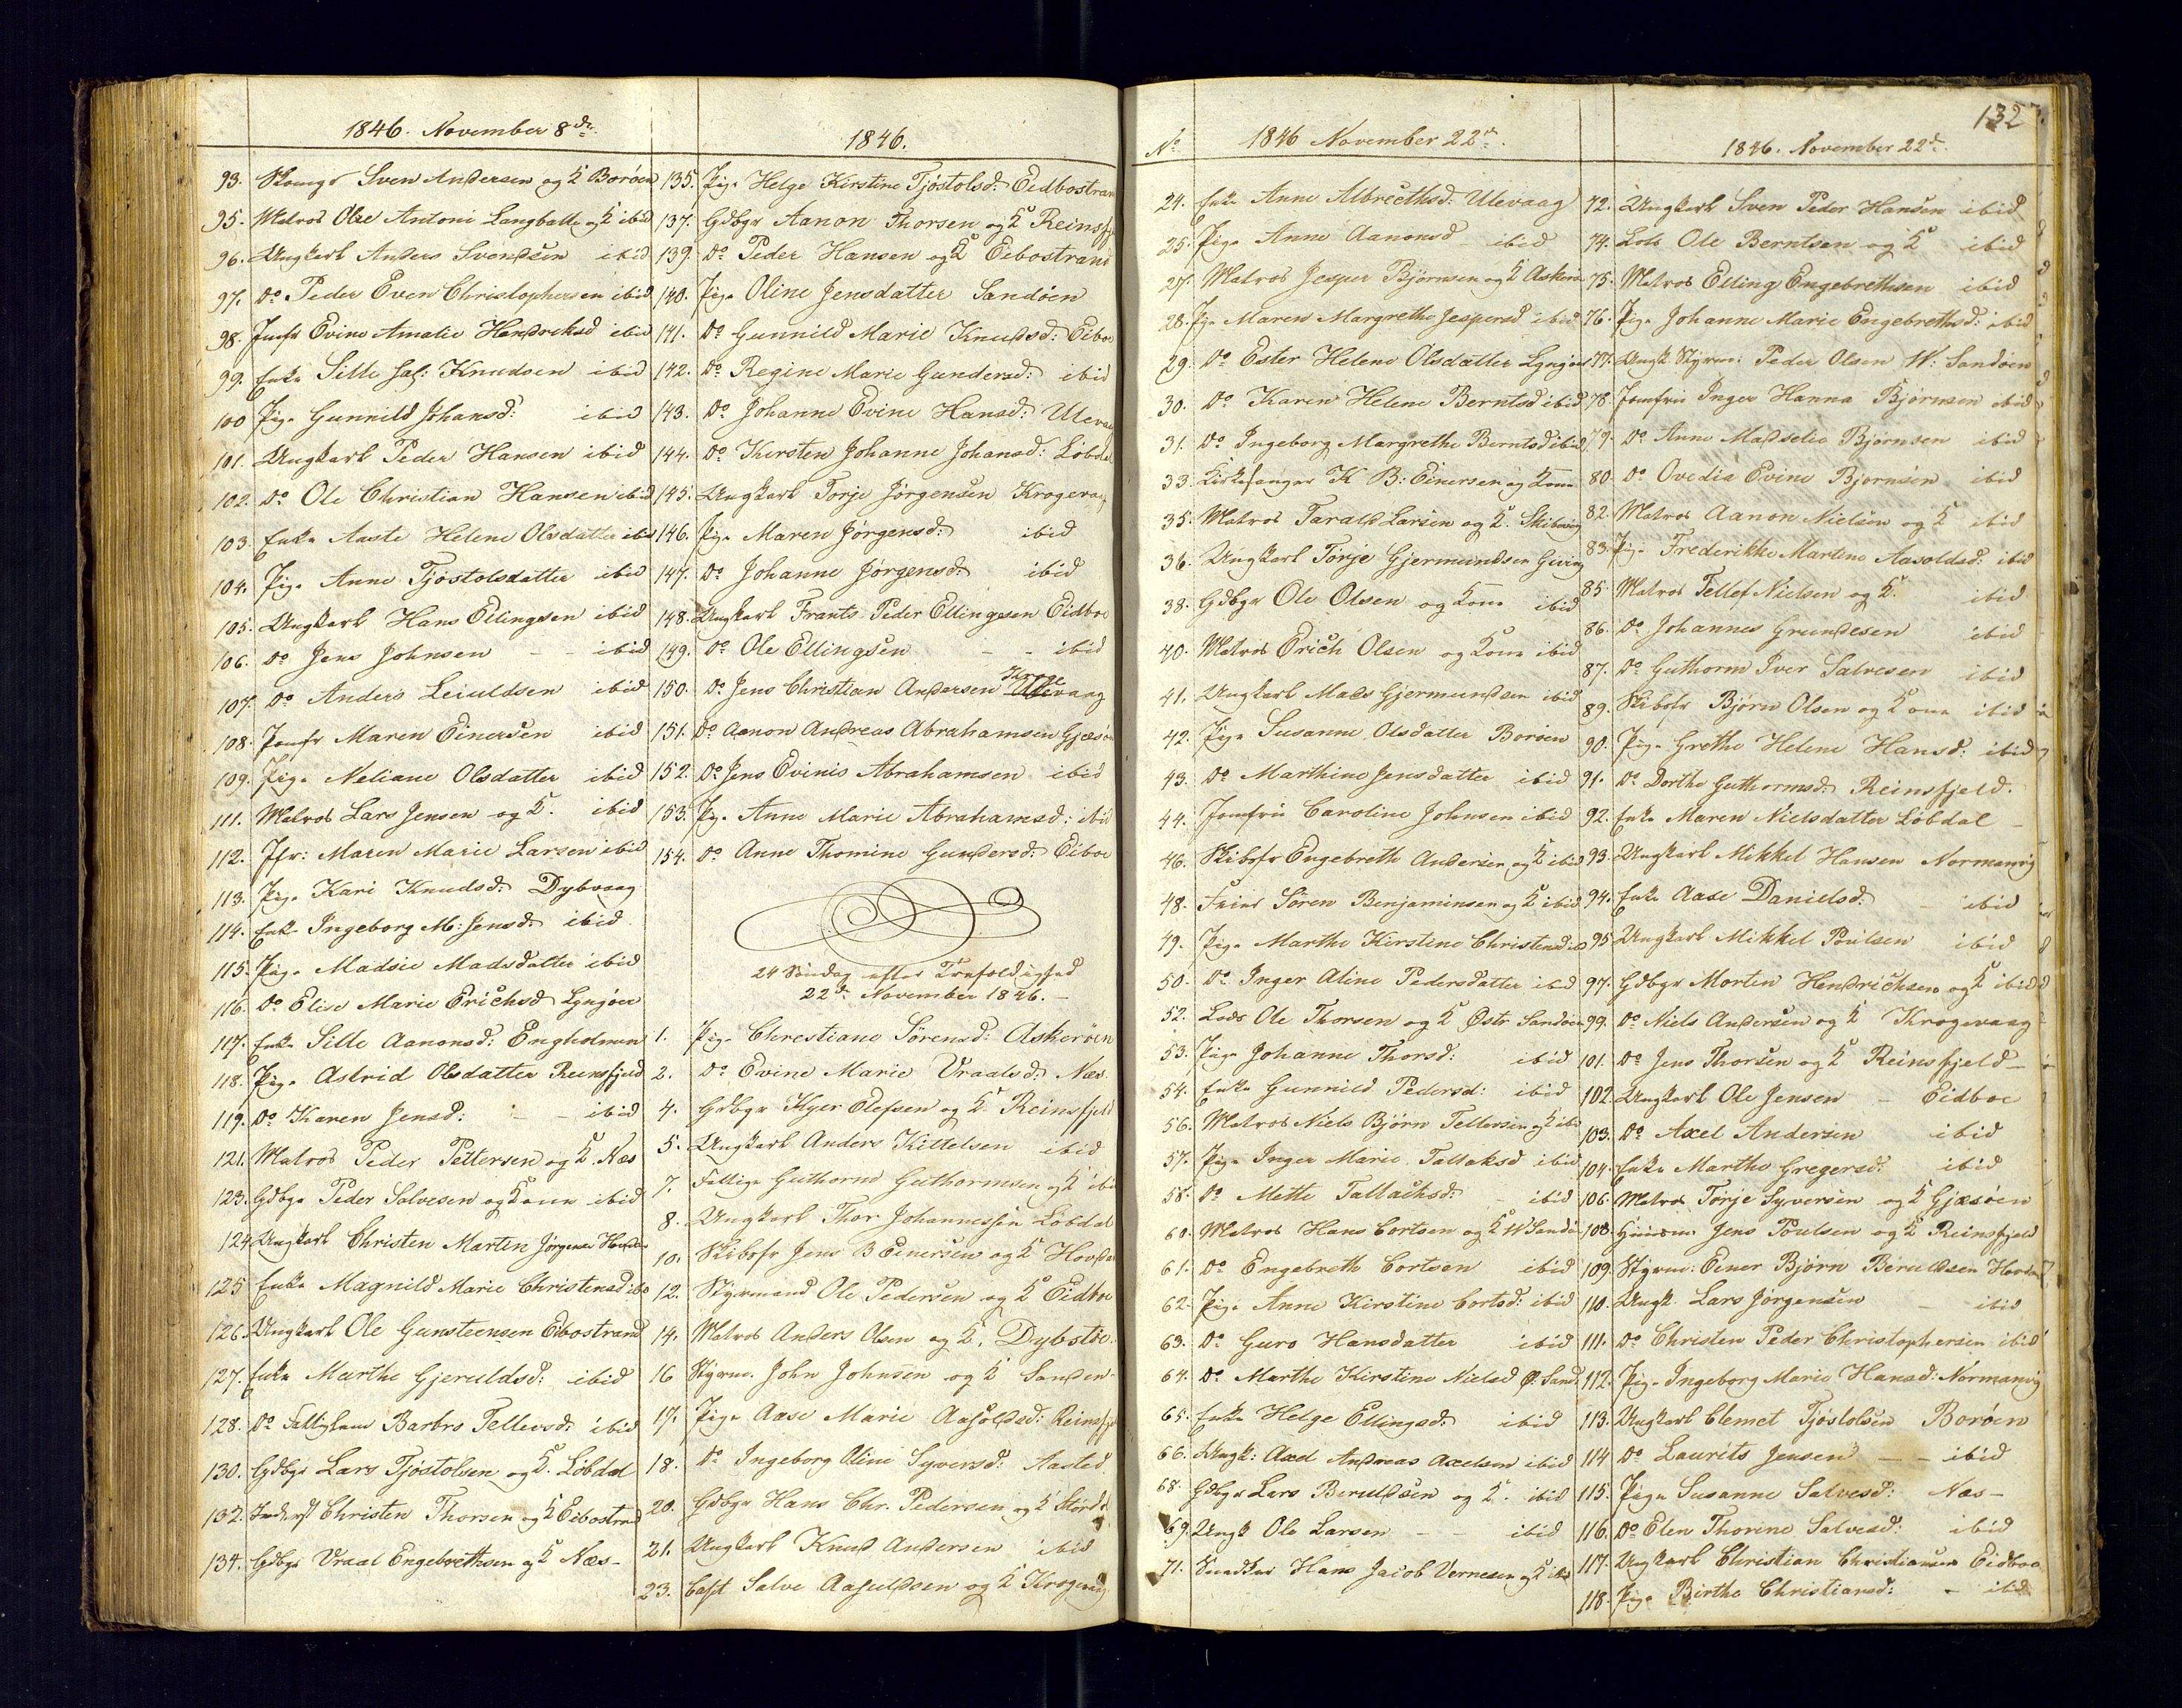 1846. November 8de
93. Sven Andersen og K Borøen
95. Matros Ole Antoni Langballe og K ibid
96. Ungkarl Anders Svendsen ibid
97. Do Peder Even Christophersen ibid
98. Jomfr Evine Amalie Hendreksd ibid
99. Enke Sille Sal: Knudsen ibid
100 Pige Gunnild Johansd: ibid
101. Ungkarl Peder Hansen ibid
102. Do Ole Christian Hansen ibid
103. Enke Aaste Helene Olsdatter ibid
104. Pige Anne Tjøstolsdatter ibid
105. Ungkarl Hans Ellingsen ibid
106. Do Jens Johnsen - - ibid
107. Do Anders Leiuldsen ibid
108. Jomfr Maren Einersen ibid
109. Pige Neliane Olsdatter ibid
111. Matros Lars Jensen og K. ibid
112. Jfr: Maren Marie Larsen ibid
113. Pige Kari Knudsd: Dybvaag
114. Enke Ingeborg M: Jensd: ibid
115. Pige Madsie Madsdatter ibid
116. Do Elise Marie Erichsd Lyngøer
117. Enke Sille Aanonsd: Engholmen
118. Pige Astrid Olsdatter Reinsfjeld
119. Do Karen Jensd: - - ibid
121. Matros Peder Pettersen og K. Næs
123. Gdbgr Peder Salvesen og Kone ibid
124. Ungkarl Christen Martin Jørgensen
125 Enke Magnild Marie Christensd ibid
126. Ungkarl Ole Gunsteensen Eibostrand
127. Enke Marthe Gjeruldsd: ibid
128. Do Barbro Tellevsd: ibid
130. Gdbgr Lars Tjøstolsen og K. Løbdal
132. Christen Thorsen og K Eibostrand
134. Gdbgr Vraal Engebrethsen og K Næs-
1846.
135. Pige Helge Kirstine Tjøstolsd: Eidbostran
137. Gdbgr Aanon Thorsen og K Reinsfj
139. Do Peder Hansen og K Eibostrand
140. Pige Oline Jensdatter Sandøen
141. Do Gunnild Marie Knudsd: Eiboe
142. Do Regine Marie Gundersd: ibid
143. Do Johanne Evine Hansd: Ulevaa
144. Do Thersten Johanne Johansd: Løbdal
145. Ungkarl Torje Jørgensen Krogevaag
146. Pige Maren Jørgensd: ibid
147. Do Johanne Jørgensd: ibid
148. Ungkarl Frants Peder Ellingsen Eidboe
149. Do Ole Ellingsen - - ibid
150. Do Jens Christian Andersen vaag
151. Do Aanon Andreas Abrahamsen Gjæsøe
152. Do Jens Evinis Abrahamsen ibid
153. Pig. Anne Marie Abrahamsd: ibid
154. Do Anne Thomine Gundersd: Eiboe
24 Søndag efter Trefoldighed
22de November 1846. -
1. Pige Chrestiane Sørensd: Askerøen
2. Do Evine Marie Vraalsd: Næs
4. Gdbgr Elefsen og K Reinsfjeld
5. Ungkarl Anders Kittelsen ibid
7. Guthorm Guthormsen og K ibi
8. Ungkarl Thor Johannessen Løbdal
10. Skibsfr Jens B Einersen og K Hovda
12. Styrmand Ole Pedersen og K Eidboe
14. Matros Anders Olsen og K. Dybstøe
16 Styrm. John Johnsen og K Sandøen
17. Pige Aase Marie Aasoldsd: Reinsfj
18. Do Ingeborg Oline Syversd: Aasted
20. Gdbgr Hans Chr. Pedersen og K
21. Ungkarl Knud Andersen ibid
23. Capt Salve Aasuldsen og K Krogevaag
132
No 1846 November 22de
24. Enke Anne Albrecthsd: Ulevaag
25. Pige Anne Aanonsd ibid
27. Matros Jesper Bjørnsen og K Askerø
28. Pige Maren Margrethe Jespersd ibid
29. Do Ester Helene Olsdatter Lyngøer
30. Do Karen Helene Berntsd ibid
31. Do Ingeborg Margrethe Berntsd ibid
33. Kirkesanger K B: Einersen og Kone
35. Matros Tarald Larsen og K. Skibvig
36. Ungkarl Torje Gjermundsen Giving
38. Gdbgr Ole Olsen og Kone ibid
40. Matros Erich Olsen og Kone ibid
41. Ungkarl Mads Gjermundsen ibid
42. Pige Susanne Olsdatter Borøen
43. Do Marthine Jensdatter ibid
44. Jomfru Caroline Johnsen ibid
46. Skibsfr Engebreth Andersen og K ibid
48. Søren Benjaminsen og K ibid
49. Pige Marthe Kirstine Christensd ibid
50. Do Inger Aline Pedersdatter ibid
52. Lods Ole Thorsen og K Østr Sandøen
53. Pige Johanne Thorsd: ibid
54. Enke Gunnild Pedersd: ibid
56. Matros Niels Bjørn Tellefsen og K ibi
57. Pige Inger Marie Tallaksd ibid
58. Do Mette Tallachsd: - ibid
60. Matros Hans Cortsen og K W Sandø
61. Do Engebreth Cortsen ibid
62. Pige Anne Kirstine Cortsd: ibid
63. Do Guro Hansdatter ibid
64. Do Marthe Kirstine Nielsd Ø: Sand.
65. Enke Helge Ellingsd: ibid
66. Ungk: Axel Andreas Axelsen ibid
68. Gdbgr Lars Beruldsen og K. ibid
69. Ungk Ole Larsen - - ibid
71. Hans Jacob Vernesen og K ibid
1846. November 22de
72. Ungkarl Sven Peder Hansen ibid
74. Lods Ole Berntsen og K ibid
75. Matros Elling Engebrethsen ibid
76. Pige Johanne Marie Engebrethsd: ibid
77. Ungk Styrm: Peder Olsen W: Sandøen
78. Jomfru Inger Hanna Bjørnsen ibid
79. Do Anne Madselie Bjørnsen ibid
80. Do Ovedia Evine Bjørnsen ibid
82. Matros Aanon Nielsen og K ibid
83. Pige Frederikke Martine Aasoldsd: ibid
85. Matros Tellef Nielsen og K. ibid
86. Do Johannes Grundesen ibid
87. Do Guthorm Iver Salvesen ibid
89. Skibsfr Bjørn Olsen og Kone ibid
90. Pige Grethe Helene Hansd: ibid
91. Do Dorthe Guthormsd: Reinsfjeld.
92. Enke Maren Nielsdatter Løbdal -
93. Ungkarl Mikkel Hansen Normanvig
94. Enke Aase Danielsd: - ibid
95 Ungkarl Mikkel Poulsen ibid
97. Gdbgr Morten Hendrichsen og K ibid
99. Do Niels Andersen og K Krogevaag
101. Do Jens Thorsen og K Reinsfjeld -
102. Ungkarl Ole Jensen - Eidboe
103. Do Axel Andersen ibid
104. Enke Marthe Gregersd: ibid
106. Matros Torje Syversen og K Gjæsøen
108. Huusm. Jens Poulsen og K Reinsfjeld
109. Styrm: Einer Bjørn Beruldsen
110. Ungk. Lars Jørgensen - ibid
111. Do Christen Peder Christophersen ibid
112. Pige Ingeborg Marie Hansd: Normanvig
113. Ungkarl Clemet Tjøstolsen Borøen
114 Do Laurits Jensen - - ibid
115. Pige Susanne Salvesd: Næs-
116. Do Elen Thorine Salvesd: ibid
117. Ungkarl Christian Christiansen Eidboe
118. Pige Birthe Christiansd: - ibid